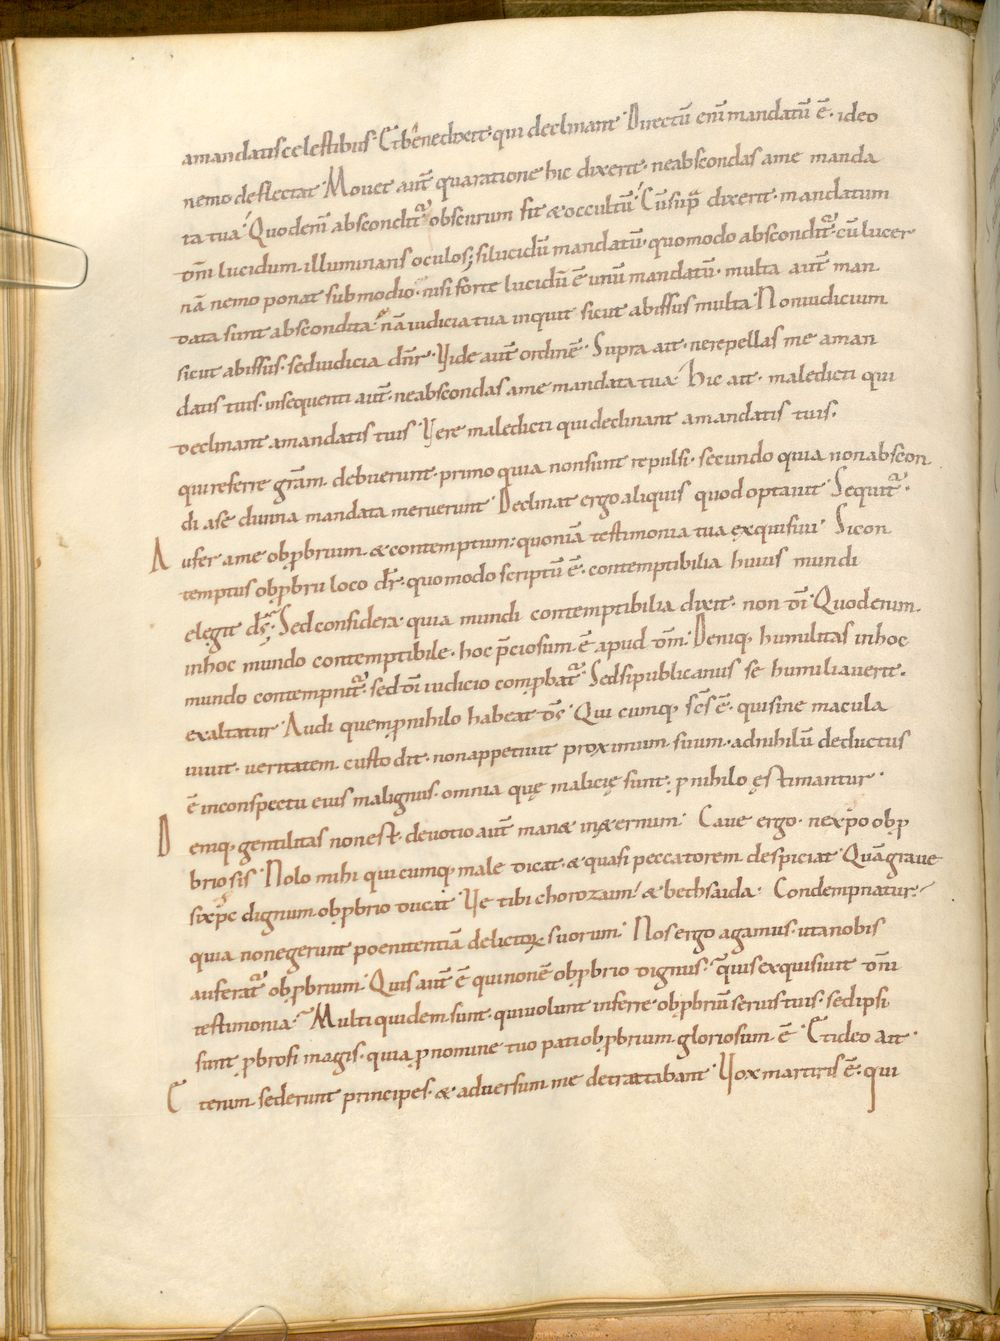 amandatis celestibus. Et bene dixit. qui declinant. Directū eni mandatū ē. ideo
nemo deflectat. Mouet aut̄ qua ratione hic dixerit. ne abscondas a me manda
ta tua. Quod enī absconditur obscurum fit & occultū. Cū sup̄ dixerit. mandatum
dn̄i lucidum illuminans oculos; si lucidū mandatū. quomodo absconditur. cū lucer
nā nemo ponat sub modio. nisi forte lucidū ē unū mandatū. multa aut̄ man
data sunt abscondita. nā iudicia tua inquit sicut abissus multa. Non iudicium
sicut abissus. sed iudicia dn̄r. Vide aut̄ ordinē. Supra ait. ne repellas me a man
datis tuis. in sequenti aut̄. ne abscondas a me mandata tua. hic ait. maledicti qui
declinant a mandatis tuis. Vere maledicti qui declinant a mandatis tuis.
qui referre grām debuerunt. primo quia non sunt repulsi. secundo quia non abscon
di a se diuina mandata meruerunt. Declinat ergo aliquis quod optauit. Sequitur.
Aufer a me obꝓbrium & contemptum: quoniā testimonia tua exquisiui. Si con
temptus obꝓbrii loco dr̄. quomodo scriptū ē. contemptibilia huius mundi
elegit ds̄; Sed considera. quia mundi contemptibilia dixit. non dī. Quod enim
in hoc mundo contemptibile. hoc p̄ciosum ē apud dn̄m. Deniq; humilitas in hoc
mundo contempnitur. sed dī iudicio comꝓbatur. Sed si publicanus se humiliauerit.
exaltatur. Audi quem ꝓ nihilo habeat ds̄. Qui cumq; scs̄ ē. qui sine macula
uiuit. ueritatem custodit. non appetiuit proximum suum. ad nihilū deductus
ē in conspectu eius malignus. omnia quę malicię sunt; ꝓ nihilo ęstimantur.
Deniq; gentilitas non est. deuotio aut̄ man& in &ernum. Caue ergo. ne xp̄o obꝓ
brio sis. Nolo mihi qui cumq; male dicat. & quasi peccatorem despiciat. Quā graue
si xp̄c dignum obꝓbrio ducat. Ve tibi chorozaim. & bethsaida. Condempnatur.
quia non egerunt poenitentiā delictoꝝ suorum. Nos ergo agamus. ut a nobis
auferatur obꝓbrium. Quis aut̄ ē qui non ē obꝓbrio dignus. quis exquisiuit dn̄i
testimonia. Multi quidem sunt. qui uolunt inferre obꝓbriū seruis tuis. sed ipsi
sunt ꝓbrosi magis. quia ꝓ nomine tuo pati obꝓbrium gloriosum ē. Et ideo ait.
Etenim sederunt principes. & aduersum me detractabant. Vox martiris ē. qui